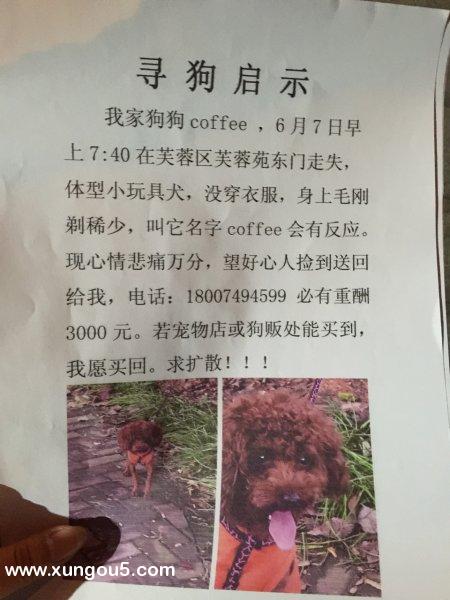 寻狗启示
我家狗狗coffee ，6月7日早
上7:40在芙蓉区芙蓉苑东门走失，
体型小玩具犬，没穿衣服，身上毛刚
剃稀少，叫它名字coffee会有反应。
现心情悲痛万分，望好心人捡到送回
给我，电话：18007494599 必有重酬
3000元。若宠物店或狗贩处能买到，
我愿买回。求扩散！！！
www.xungou5.com